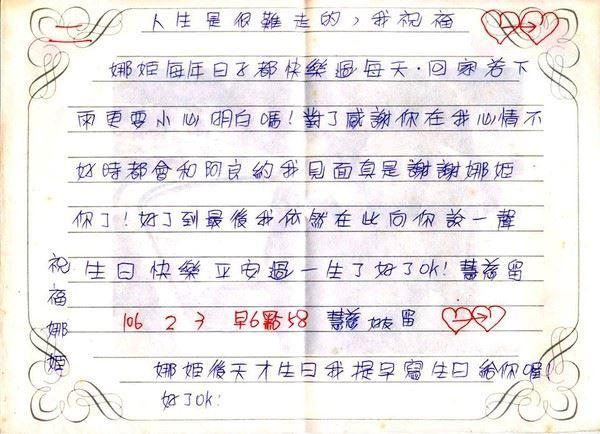 人生是很難走的，我祝福
娜姫每年日子都快樂過每天．回家若下
雨更要小心明白嗎！對了感謝你在我心情不
好時都會和阿良約我見面真是謝謝娜姫
你了！好了到最後我依然在此向你說一聲
生日快樂平安過一生了好了ok！慧慈留
祝福娜姫
106 2 3 早6點58 慧慈 姊友 留
娜姫後天才生日我提早寫生日給你喔！
好了ok！